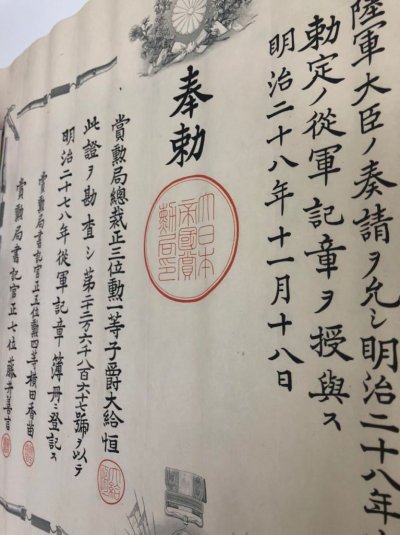 陸軍大臣ノ奏請ヲ允シ明治二十八年
勅定ノ從軍記章ヲ授與ス
明治二十八年十一月十八日
奉勅
大日本帝國賞勳局印
賞勳局總裁正三位勳一等子爵大給恒
此證ヲ勘査シ第二十二万六千八百六十七號ヲ以テ
明治二十七八年從軍記章簿冊ニ登記ス
賞勳局書記官正五位勳四等横田香苗
賞勳局書記官正七位藤井善言